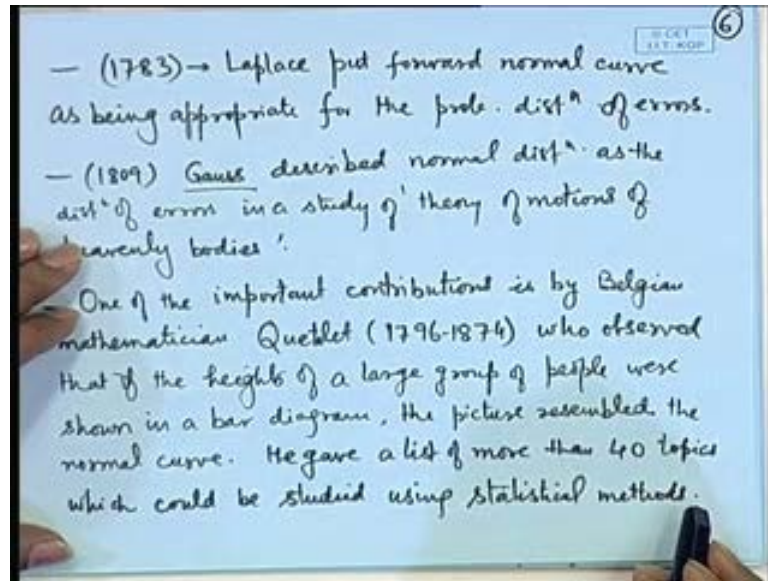 6
© CET
I.I.T. KGP
— (1783) → Laplace put forward normal curve
as being appropriate for the prob. distⁿ of errors.
— (1809) Gauss described normal distⁿ. as the
distⁿ of errors in a study of 'theory of motions of
heavenly bodies'.
One of the important contributions is by Belgian
mathematician Quetelet (1796-1874) who observed
that if the heights of a large group of people were
shown in a bar diagram, the picture resembled the
normal curve. He gave a list of more than 40 topics
which could be studied using statistical methods.